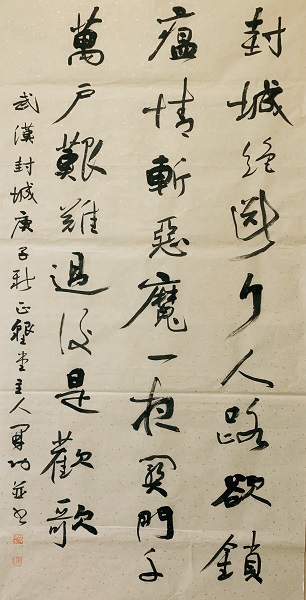 封城絕斷行人路欲鎖
瘟情斬惡魔一夜関門千
萬户艱難過後是歡歌
武漢封城庚子新正堂主人並書